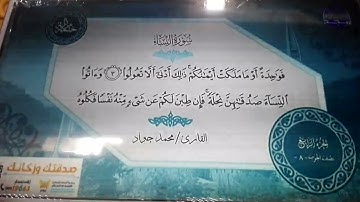 سُورَةُ النِّسَاء
فَوَٰحِدَةً أَوْ مَا مَلَكَتْ أَيْمَٰنُكُمْ ۚ ذَٰلِكَ أَدْنَىٰٓ أَلَّا تَعُولُوا۟ ﴿٣﴾ وَءَاتُوا۟
ٱلنِّسَآءَ صَدُقَٰتِهِنَّ نِحْلَةً ۚ فَإِن طِبْنَ لَكُمْ عَن شَىْءٍ مِّنْهُ نَفْسًا فَكُلُوهُ
القارئ/محمد جواد
الجزء الرابع
نصف الحزب - ٨ -
صدقتك وزكاتك